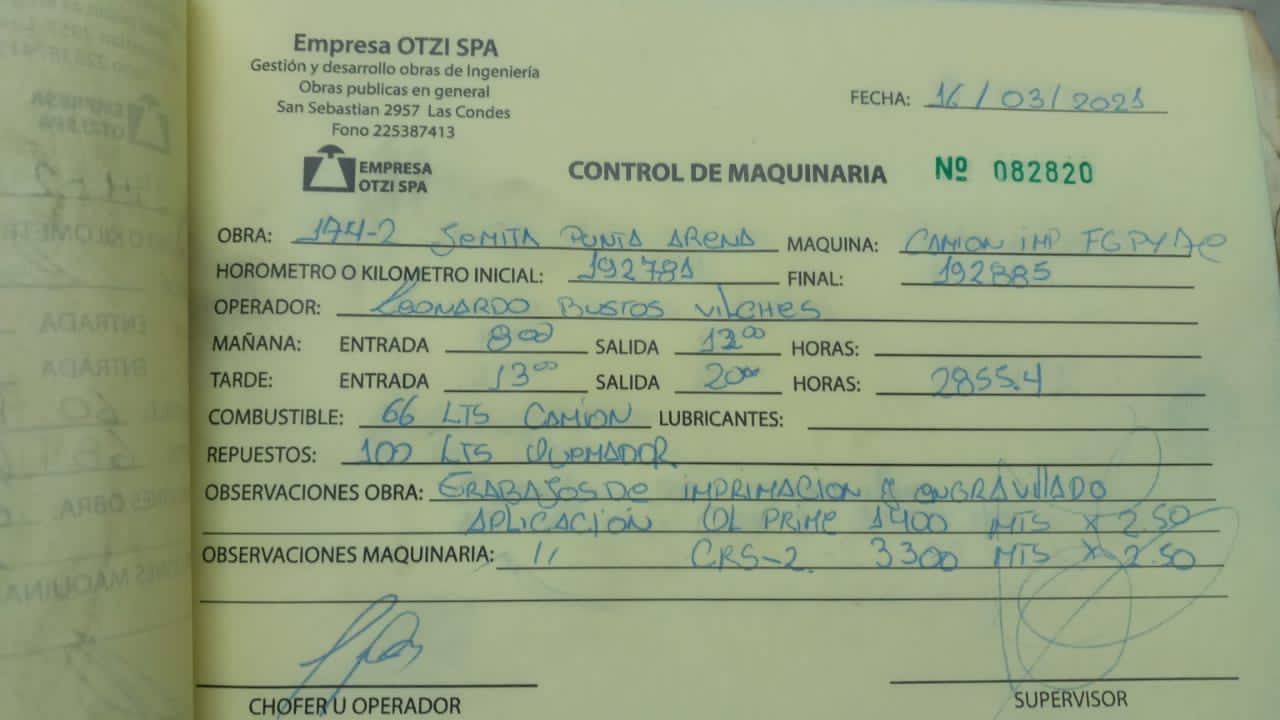 Empresa OTZI SPA
Gestión y desarrollo obras de Ingeniería
Obras publicas en general
San Sebastian 2957 Las Condes
Fono 225387413
FECHA: 16/03/2021
EMPRESA
OTZI SPA
CONTROL DE MAQUINARIA Nº 082820
OBRA: 174-2 SEMITA PUNTA ARENA MAQUINA: CAMION IMP
HOROMETRO O KILOMETRO INICIAL: 192781 FINAL: 192885
OPERADOR: LEONARDO BUSTOS VILCHES
MAÑANA: ENTRADA 8:00 SALIDA 12:00 HORAS:
TARDE: ENTRADA 13:00 SALIDA 20:00 HORAS: 2855.4
COMBUSTIBLE: 66 LTS CAMION LUBRICANTES:
REPUESTOS: 100 LTS QUEMADOR
OBSERVACIONES OBRA: TRABAJOS DE IMPRIMACION & ENGRAVILLADO
APLICACION OL PRIME 1400 MTS X 2.50
OBSERVACIONES MAQUINARIA: 11 CRS-2. 3300 MTS X 2.50
CHOFER U OPERADOR
SUPERVISOR